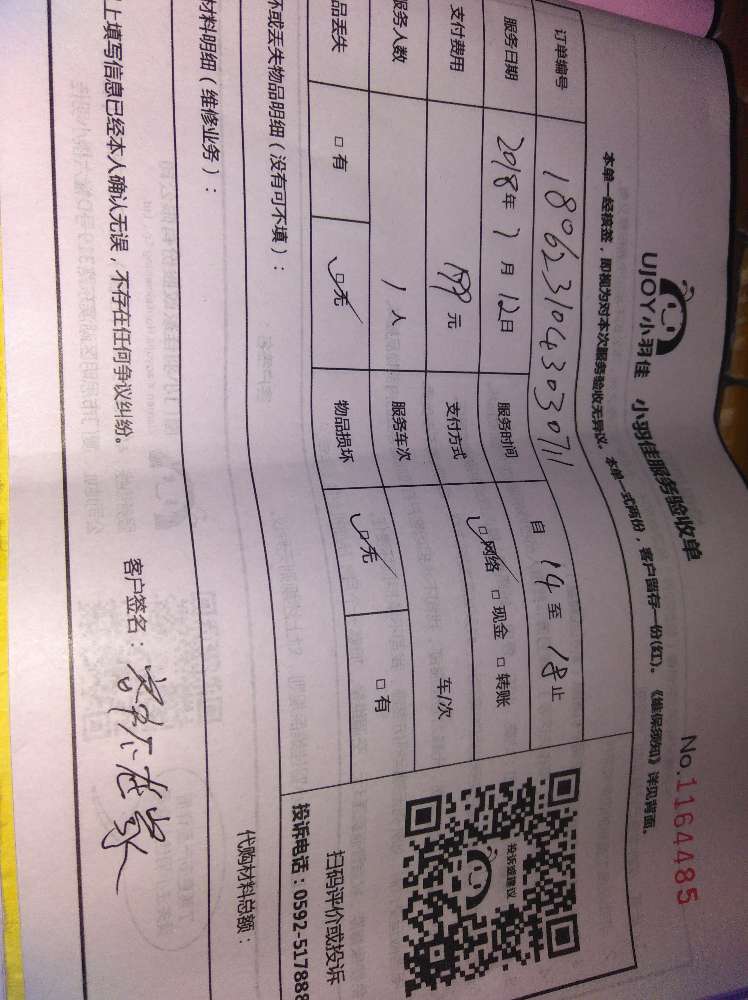 UJOY小羽佳 小羽佳服务验收单
No.1164485
本单一经核签，即视为对本次服务验收无异议。本单一式两份，客户留存一份(红)。《维保须知》详见背面。
订单编号 180623104303071
服务日期 2018年7月12日 服务时间 自14至18止
支付费用 199元 支付方式 网络 现金 转账
服务人数 1人 服务车次 车/次
品丢失 有 无 物品损坏 无 有
投诉或建议
扫码评价或投诉
投诉电话：0592-517888
坏或丢失物品明细（没有可不填）：
材料明细（维修业务）： 代购材料总额：
上填写信息已经本人确认无误，不存在任何争议纠纷。 客户签名：